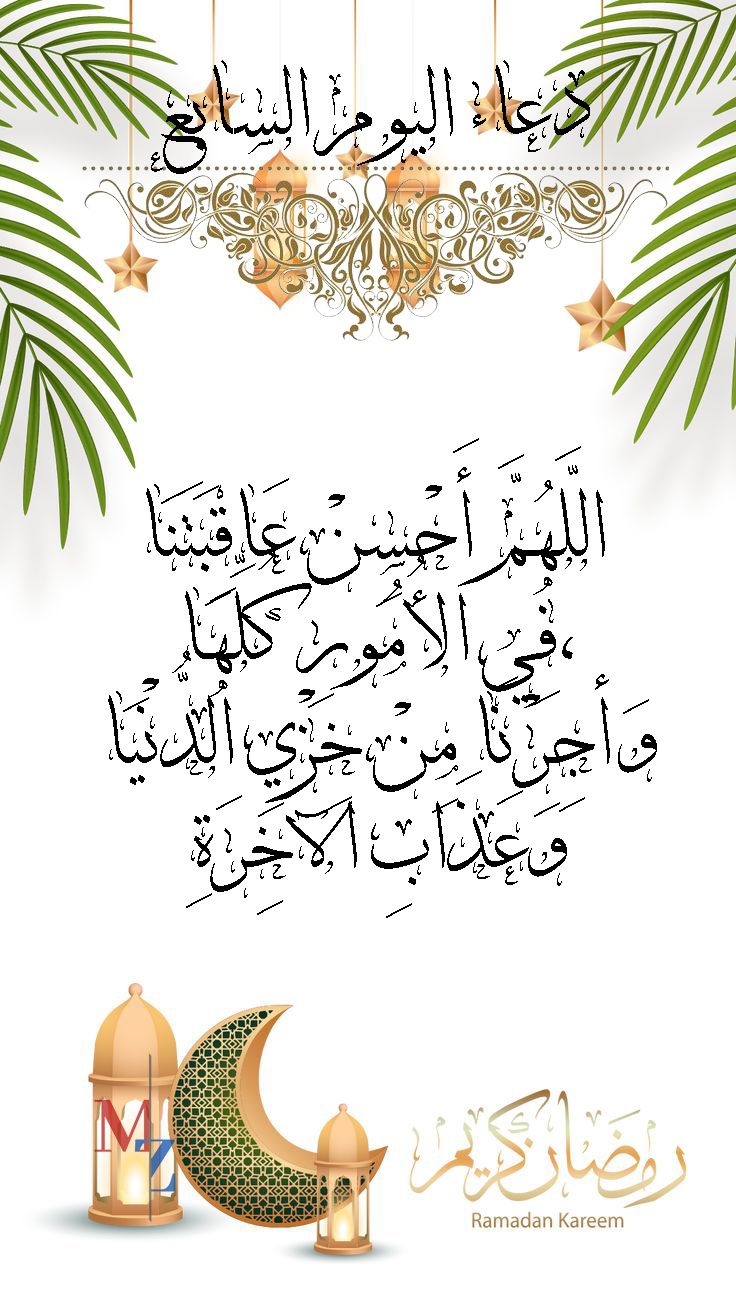 دعاء اليوم السابع
اللَّهُمَّ أَحْسِنْ عَاقْبَتَنَا
فِي الأُمُورِ كُلِّهَا،
وَأَجِرْنَا مِنْ خِزْيِ الدُّنْيَا
وَعَذَابِ الآخِرَةِ
MZ
رمضان كريم
Ramadan Kareem